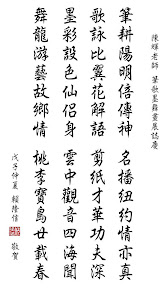 陳輝老師 筆耕墨舞畫展誌慶
筆耕陽明倍傳神 名播紐約情亦真
歌詠比翼花解語 剪紙才華功夫深
墨彩設色仙侶身 雲中觀音四海聞
舞龍游藝故鄉情 桃李寶島廿載春
戊子仲夏 賴 敬賀